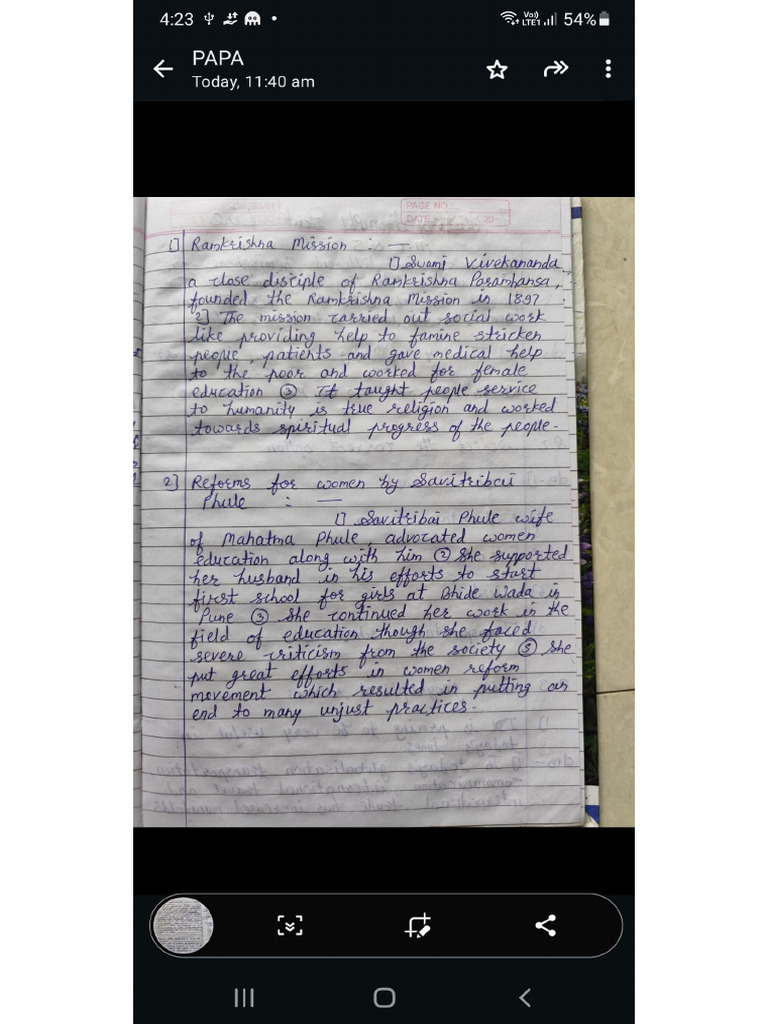 4:23
Vo)) LTE1 54%
PAPA
Today, 11:40 am
PAGE NO.:
DATE: 20
1] Ramkrishna Mission :—
1] Swami Vivekananda
a close disciple of Ramkrishna Paramhansa,
founded the Ramkrishna Mission in 1897.
2] The mission carried out social work
like providing help to famine stricken
people, patients and gave medical help
to the poor and worked for female
education ③ It taught people service
to humanity is true religion and worked
towards spiritual progress of the people.
2] Reforms for women by Savitribai
Phule :—
1] Savitribai Phule wife
of Mahatma Phule, advocated women
education along with him ② She supported
her husband in his efforts to start
first school for girls at Bhide Wada in
Pune ③ She continued her work in the
field of education though she faced
severe criticism from the society ⑤ She
put great efforts in women reform
movement which resulted in putting an
end to many unjust practices.